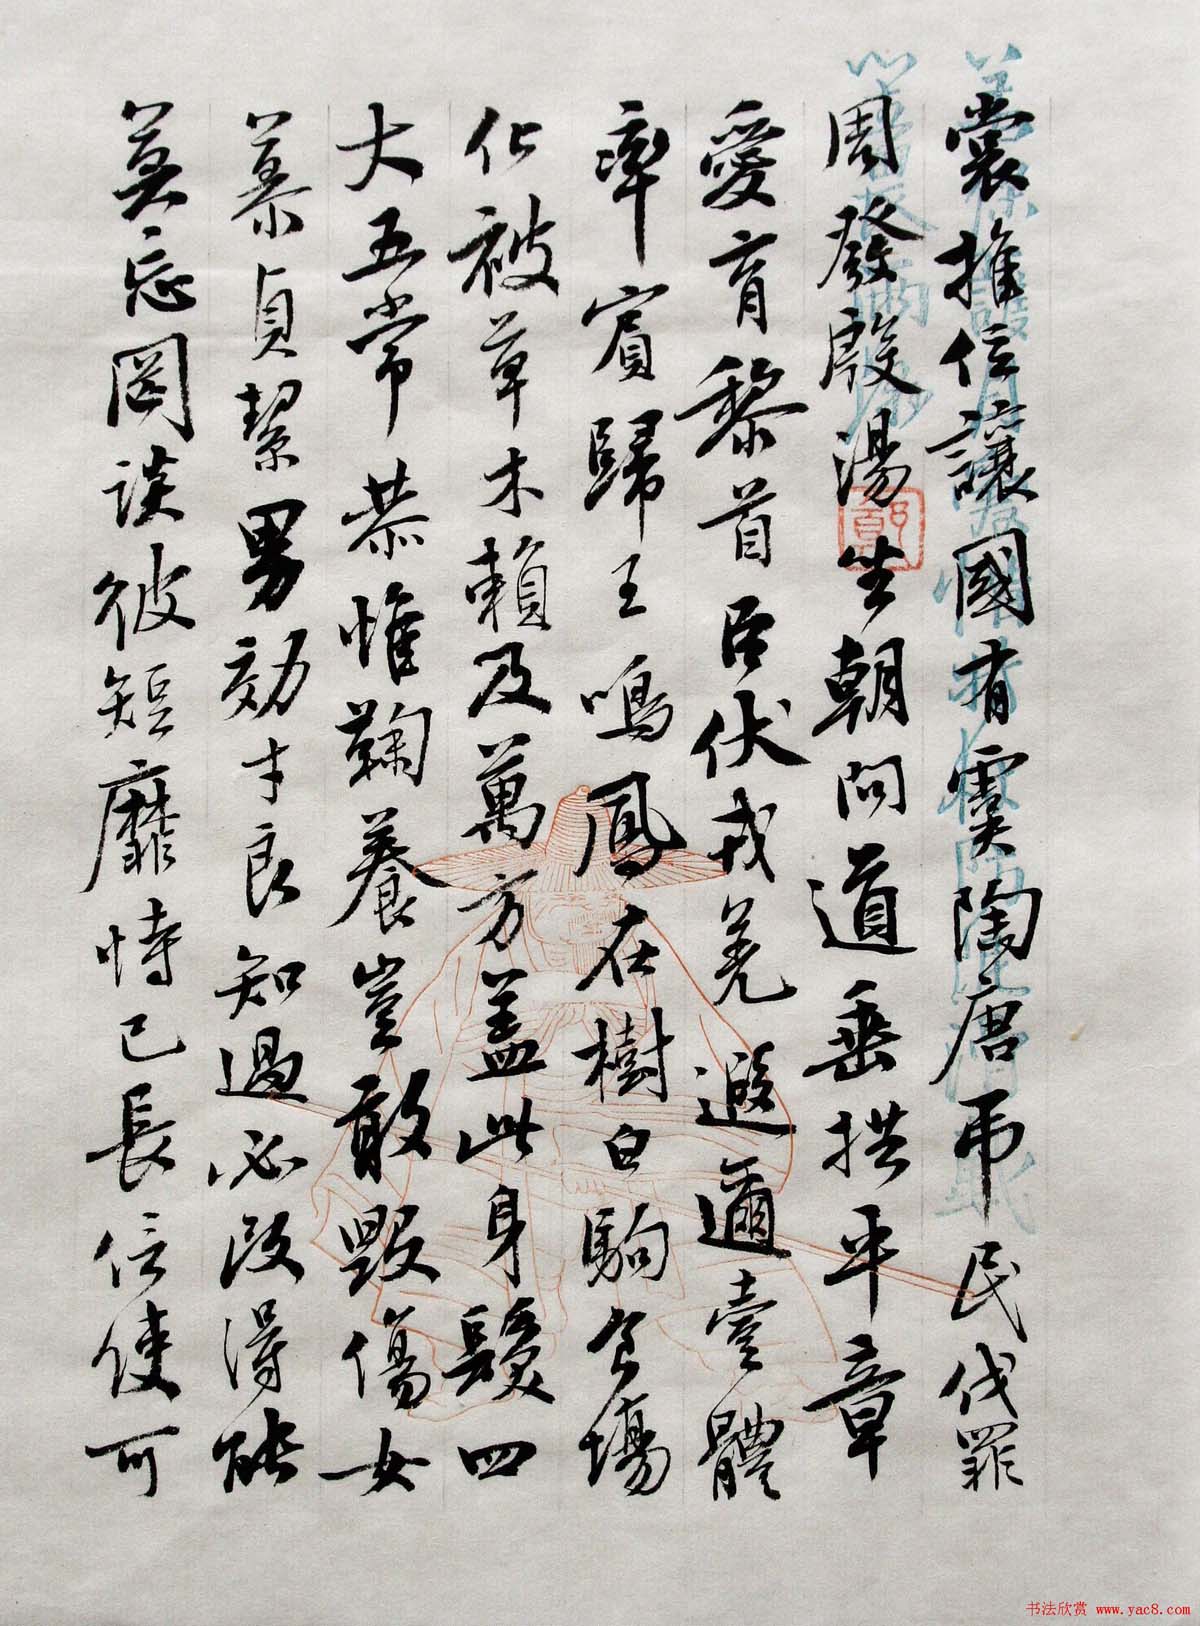 裳推位讓國有虞陶唐吊民伐罪
周發殷湯坐朝問道垂拱平章
愛育黎首臣伏戎羌遐邇壹體
率賓歸王鳴鳳在樹白駒食場
化被草木賴及萬方蓋此身髮四
大五常恭惟鞠養豈敢毀傷女
慕貞絜男効才良知過必改得能
莫忘罔談彼短靡恃己長信使可
书法欣赏 www.yac8.com